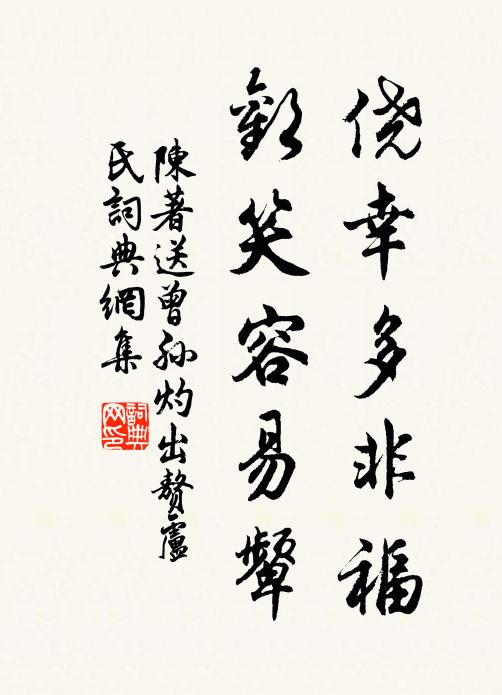 侥幸多非福
歡笑容易顰
陳著送曾孙灼出贅盧
氏詞典網集
詞典网印